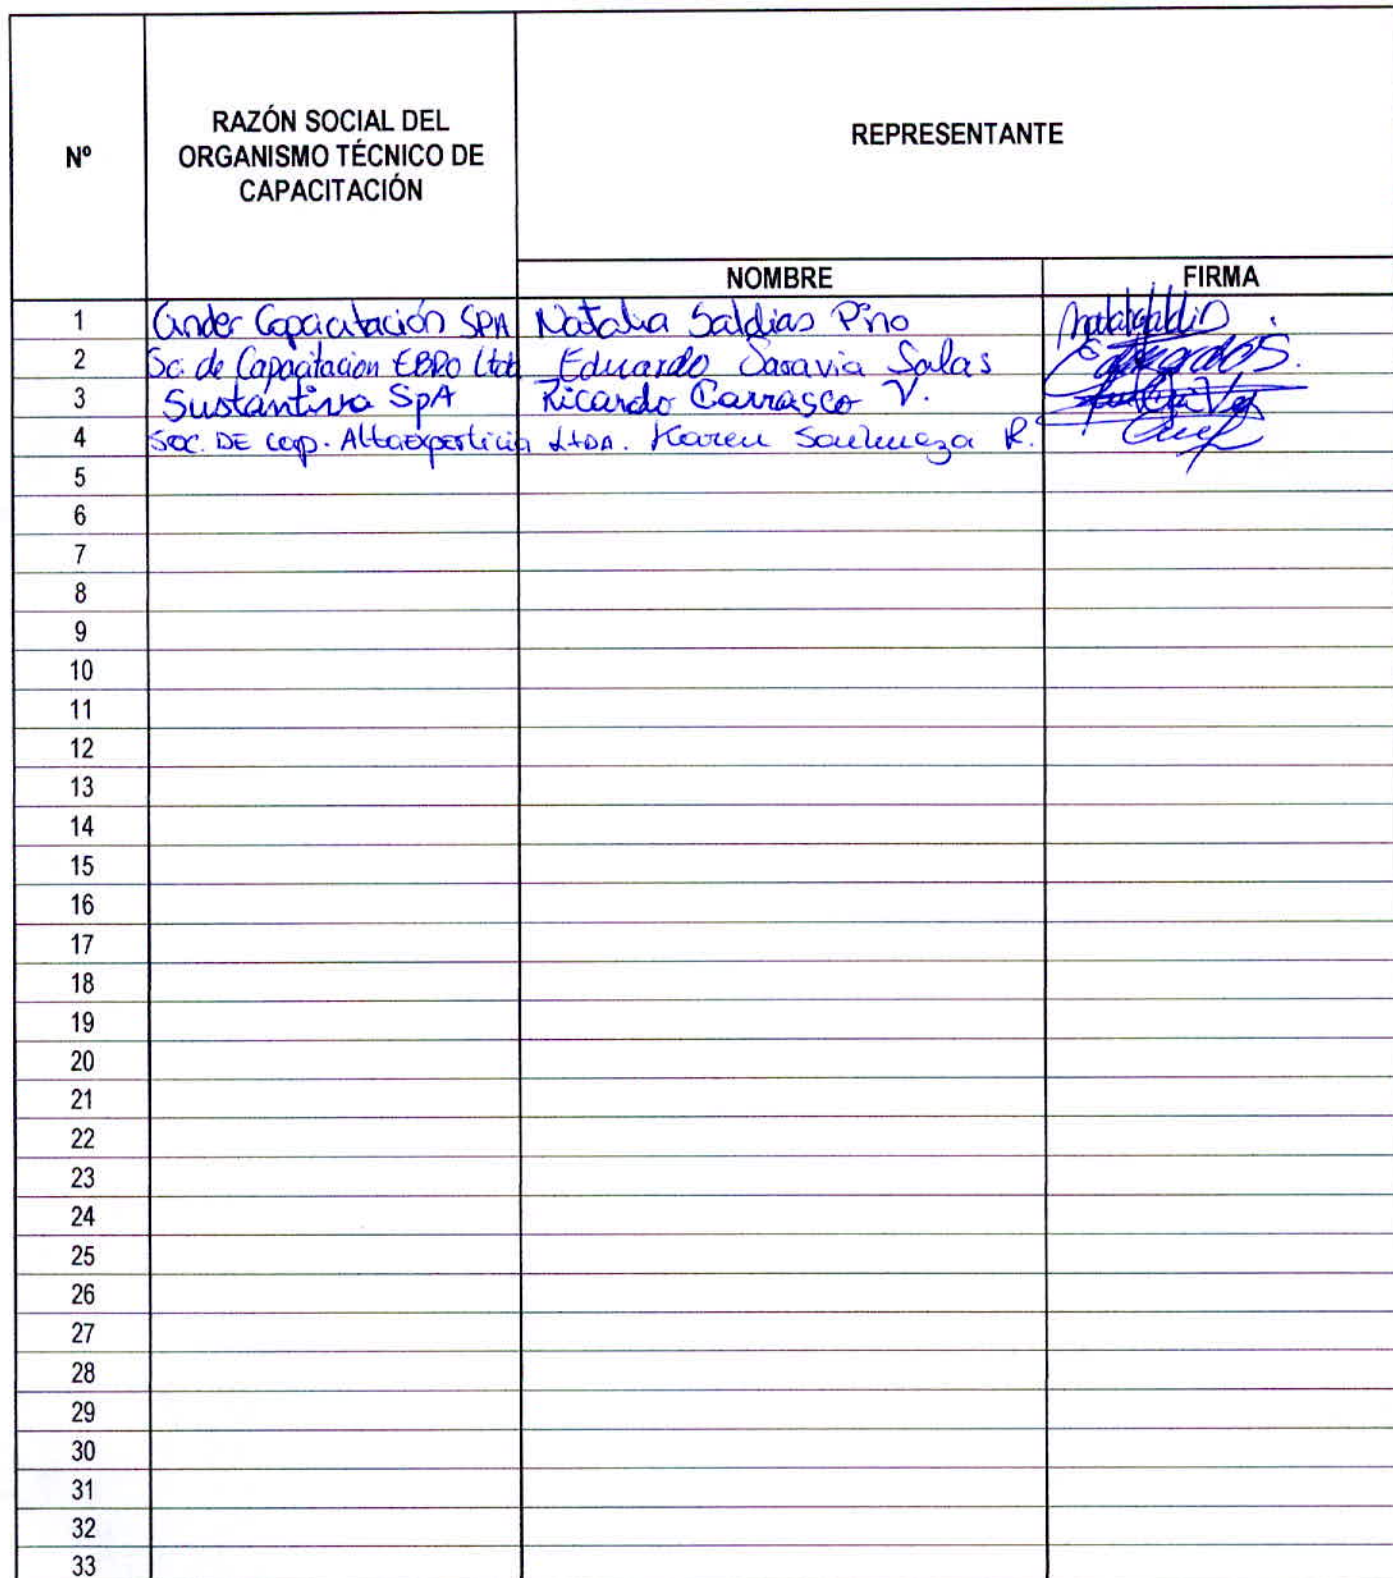 Nº
RAZÓN SOCIAL DEL
ORGANISMO TÉCNICO DE
CAPACITACIÓN
REPRESENTANTE
NOMBRE
FIRMA
1 Ander Capacitación SPA Natalia Saldias Pino
2 Sc. de Capacitacion EBRO Ltda Eduardo Saravia Salas
3 Sustantiva SpA Ricardo Carrasco V.
4 Soc. DE cap. Altaexperticia LTDA. Karen R.
5
6
7
8
9
10
11
12
13
14
15
16
17
18
19
20
21
22
23
24
25
26
27
28
29
30
31
32
33